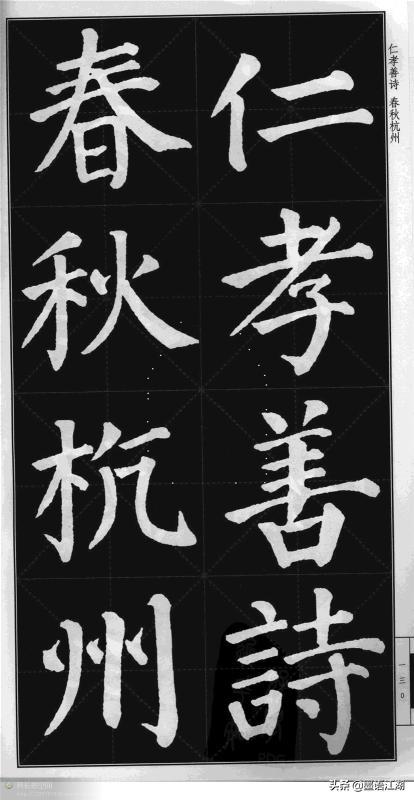 仁孝善詩
春秋杭州
仁孝善诗 春秋杭州
一三〇
头条 @墨语江湖